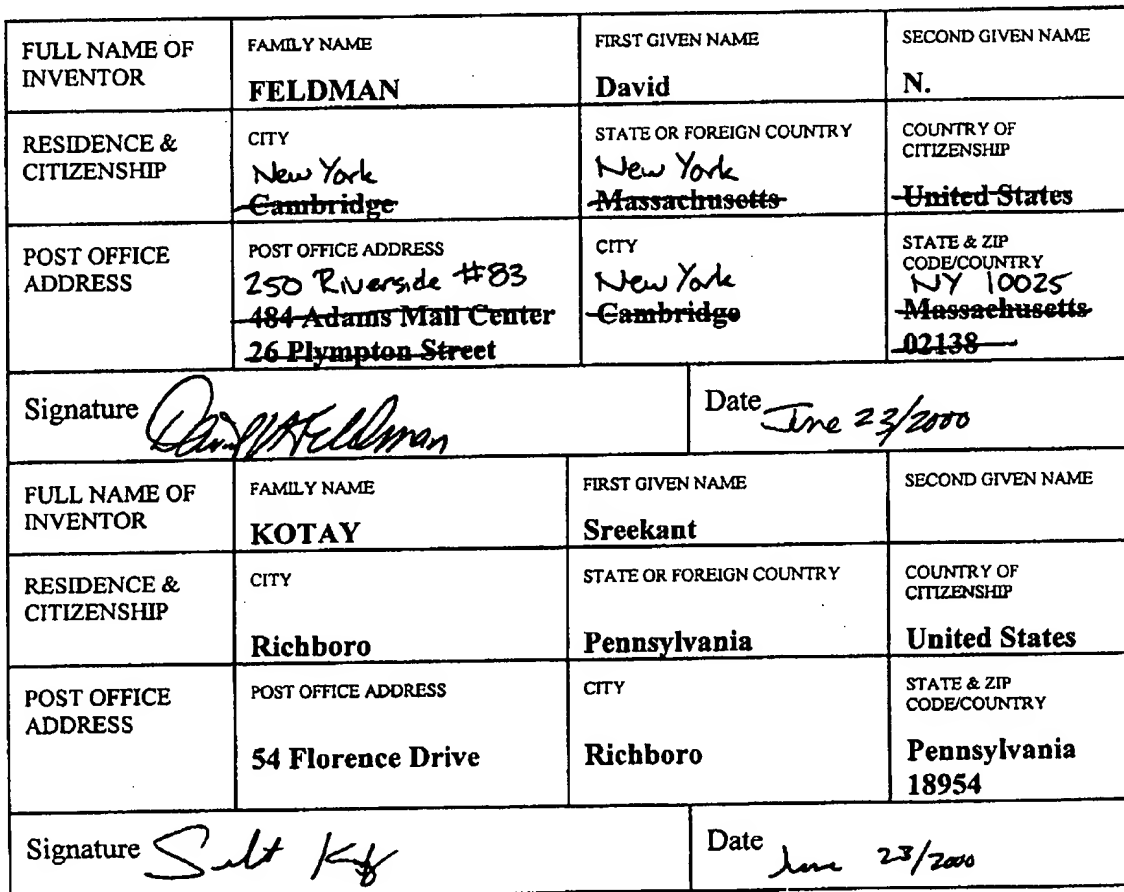 FULL NAME OF INVENTOR
FAMILY NAME
FELDMAN
FIRST GIVEN NAME
David
SECOND GIVEN NAME
N.
RESIDENCE &
CITIZENSHIP
CITY
New York
Cambridge
STATE OR FOREIGN COUNTRY
New York
Massachusetts
COUNTRY OF
CITIZENSHIP
United States
POST OFFICE
ADDRESS
POST OFFICE ADDRESS
250 Riverside #83
484 Adams Mail Center
26 Plympton Street
CITY
New York
Cambridge
STATE & ZIP
CODE/COUNTRY
NY 10025
Massachusetts
02138
Signature David N Feldman
Date June 23/2000
FULL NAME OF
INVENTOR
FAMILY NAME
KOTAY
FIRST GIVEN NAME
Sreekant
SECOND GIVEN NAME
RESIDENCE &
CITIZENSHIP
CITY
Richboro
STATE OR FOREIGN COUNTRY
Pennsylvania
COUNTRY OF
CITIZENSHIP
United States
POST OFFICE
ADDRESS
POST OFFICE ADDRESS
54 Florence Drive
CITY
Richboro
STATE & ZIP
CODE/COUNTRY
Pennsylvania
18954
Signature
Date June 23/2000